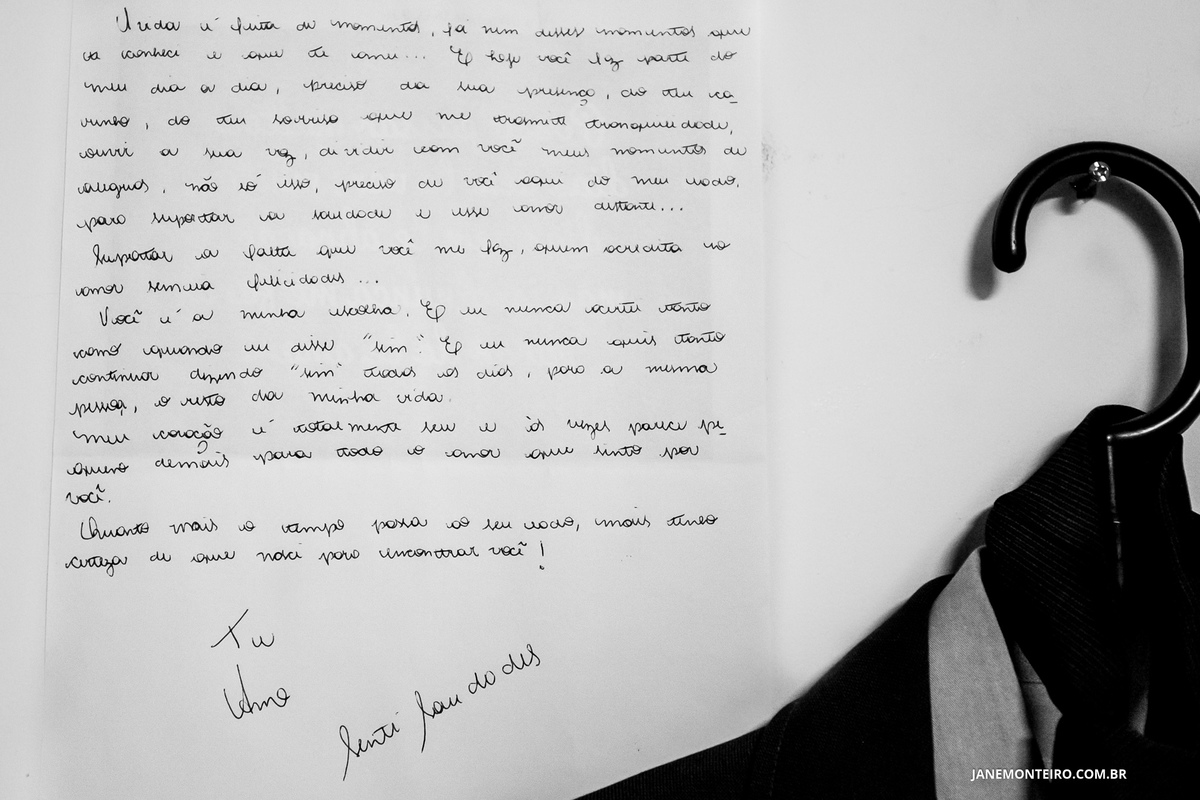 A vida é feita de momentos, foi num desses momentos que
te conheci e que te amei... E hoje você faz parte do
meu dia a dia, preciso da sua presença, do teu ca-
rinho, do teu sorriso que me transmite tranquilidade,
ouvir a sua voz, dividir com você meus momentos de
alegrias, não só isso, preciso de você aqui do meu lado,
para suportar a saudade e esse amor distante...
Suportar a falta que você me faz, quem acredita no
amor semeia felicidades...
Você é a minha escolha. E eu nunca acertei tanto
como quando eu disse "sim". E eu nunca quis tanto
continuar dizendo "sim" todos os dias, para a mesma
pessoa, o resto da minha vida.
Meu coração é totalmente seu e às vezes parece pe-
queno demais para todo o amor que sinto por
você.
Quanto mais o tempo passa ao seu lado, mais tenho
certeza de que nasci para encontrar você!
Te
Amo
Senti Saudades
JANEMONTEIRO.COM.BR